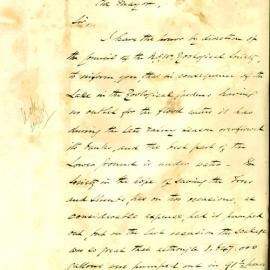 The Mayor,
Sir,
I have the honor by direction of
the Council of the N.S.W. Zoological Society,
to inform you, that in consequence of the
Lake in the Zoological Gardens having
no outlet for the flood water it has
during the late rainy season overflowed
its banks, and the best part of the
Lower ground is under water. The
Society in the hope of saving the Trees
and Shrubs has on two occasions, at
considerable expense, had it pumped
out, but on the last occasion the soakage
was so great that although
gallons were pumped out in